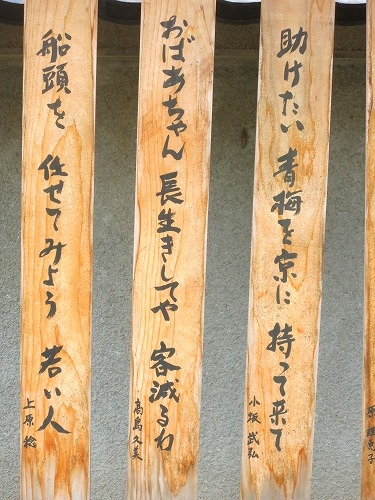 助けたい 青梅を京に 持って来て
小坂 武弘
おばあちゃん 長生きしてや 客減るわ
高島久美
船頭を 任せてみよう 若い人
上原 稔